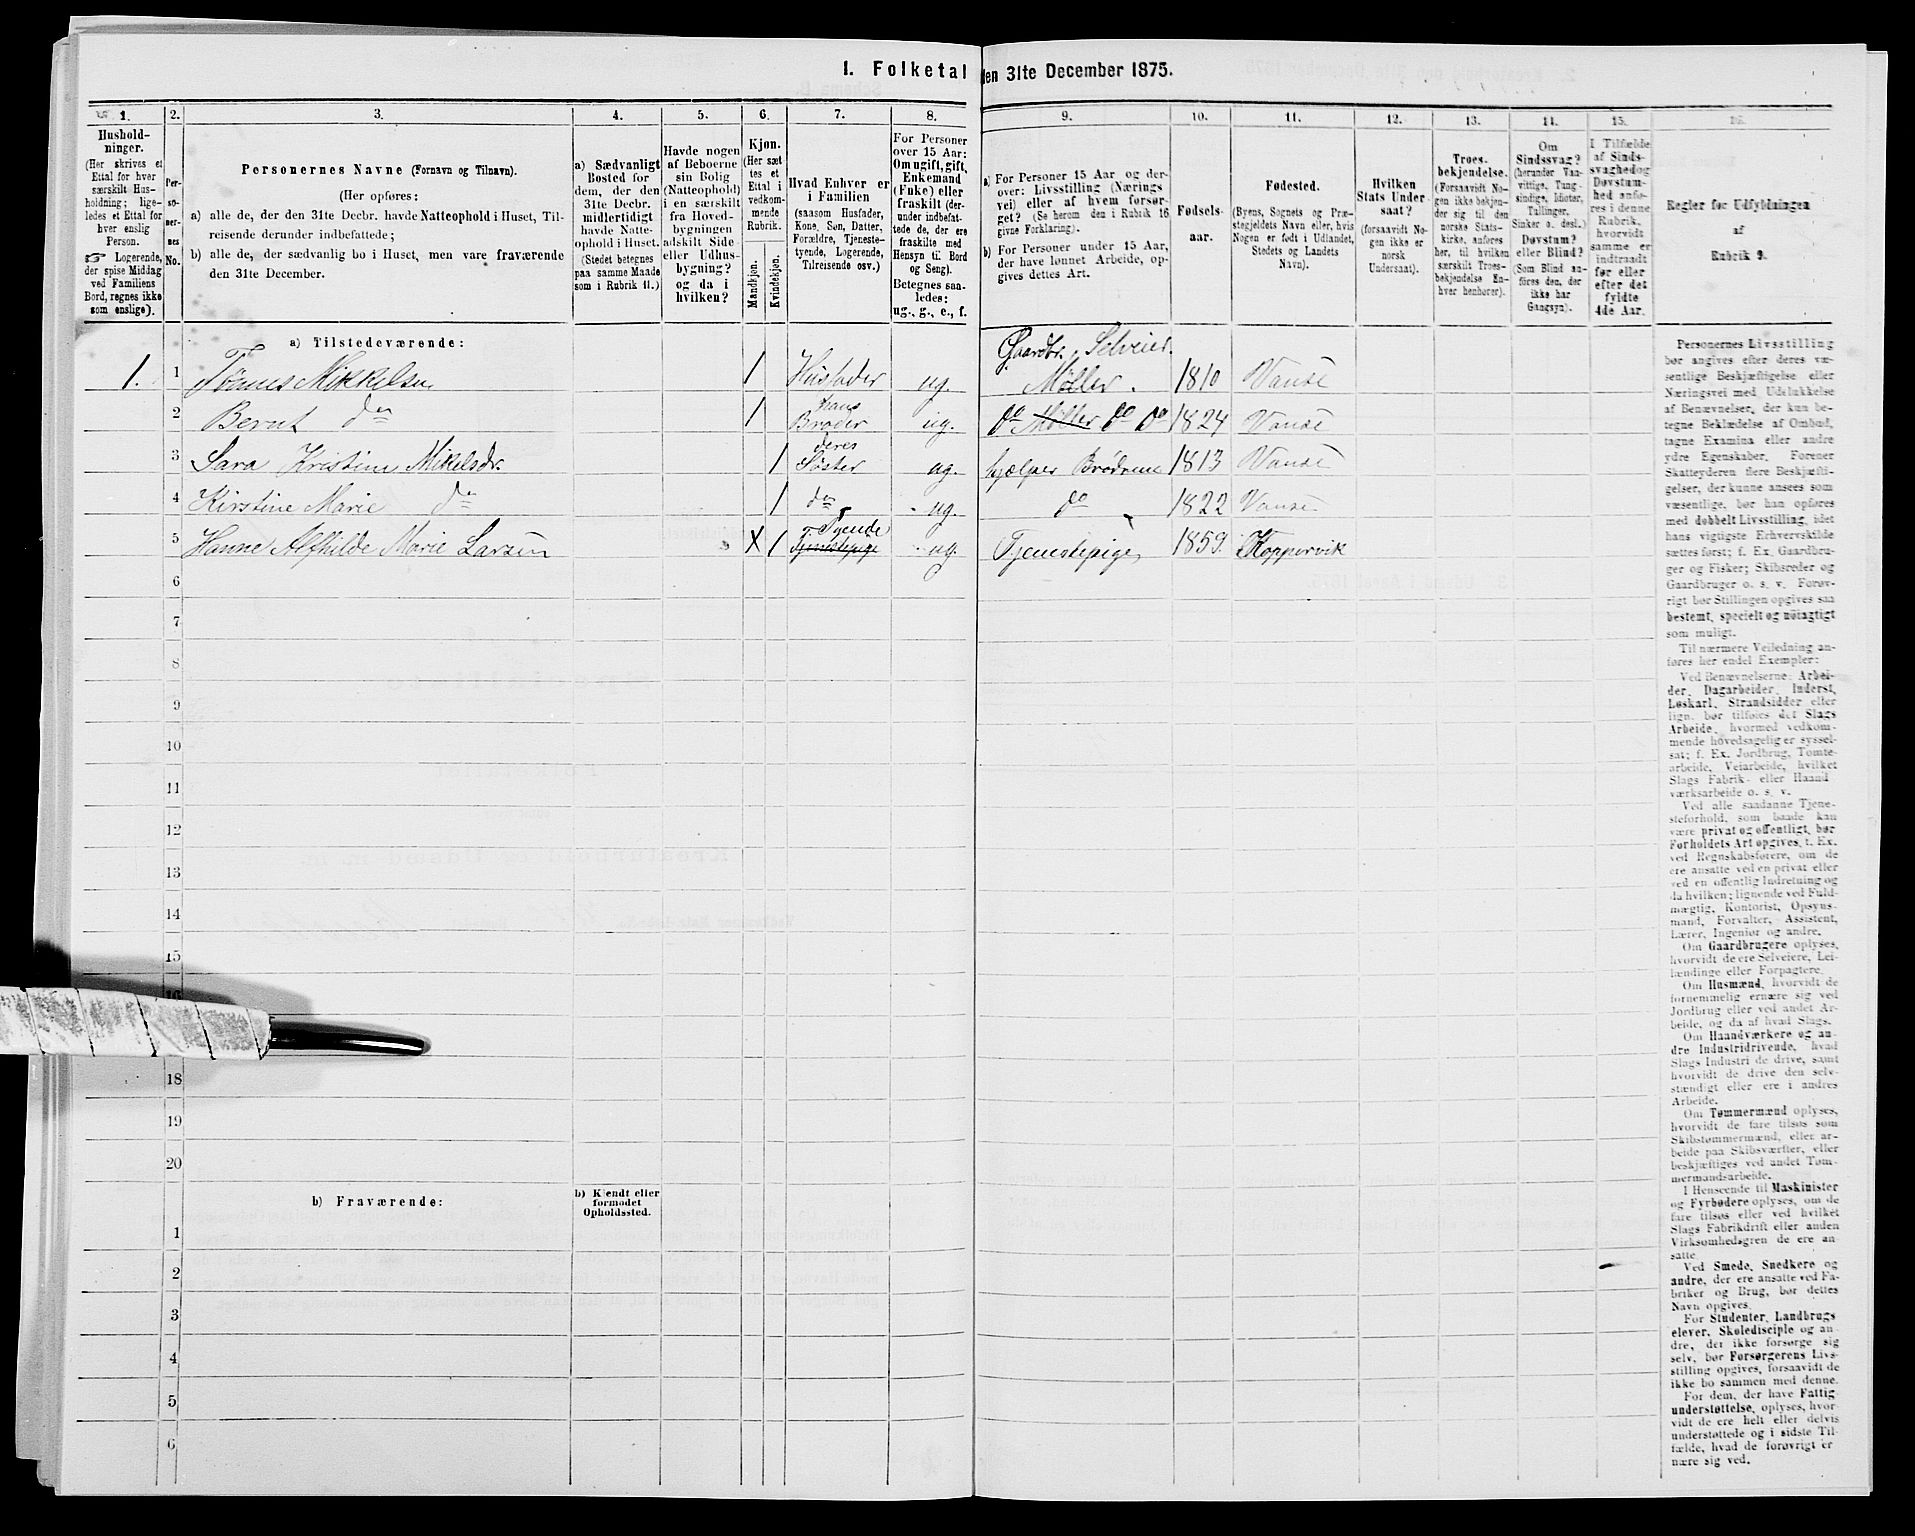 1. Folketal den 31te December 1875.
1.
Hushold-
ninger.
(Her skrives et
Ettal for hver
særskilt Hus-
holdning; lige-
ledes et Ettal for
hver enslig
Person.
☞ Logerende,
der spise Middag
ved Familiens
Bord, regnes ikke
som enslige).
2.
Per-
soner-
nes
No.
3.
Personernes Navne (Fornavn og Tilnavn).
(Her opføres:
a) alle de, der den 31te Decbr. havde Natteophold i Huset, Til-
reisende derunder indbefattede;
b) alle de, der sædvanlig bo i Huset, men vare fraværende
den 31te December.
4.
a) Sædvanligt
Bosted for
dem, der den
31te Decbr.
midlertidigt
havde Natte-
ophold i Huset.
(Stedet betegnes
paa samme Maade
som i Rubrik 11.)
5.
Havde nogen
af Beboerne
sin Bolig
(Natteophold)
i en særskilt
fra Hoved-
bygningen
adskilt Side-
eller Udhus-
bygning?
og da i
hvilken?
6.
Kjøn.
(Her sæt
tes et
Ettal i
vedkom-
mende
Rubrik.
Mandkjøn.
Kvindekjøn.
7.
Hvad Enhver er
i Familien
(saasom Husfader,
Kone, Søn, Datter,
Forældre, Tjeneste-
tyende, Logerende,
Tilreisende osv.)
8.
For Personer
over 15 Aar:
Om ugift, gift,
Enkemand
(Enke) eller
fraskilt (der-
under indbefat-
tede de, der ere
fraskilte med
Hensyn til Bord
og Seng).
Betegnes saa-
ledes:
ug., g., e., f.
9.
a) For Personer 15 Aar og der-
over: Livsstilling (Nærings
vei) eller af hvem forsør-
get? (Se herom den i Rubrik 16
givne Forklaring).
b) For Personer under 15 Aar,
der have lønnet Arbeide, op-
gives dettes Art.
10.
Fødsels-
aar.
11.
Fødested.
(Byens, Sognets og Præ-
stegjeldets Navn eller, hvis
Nogen er født i Udlandet,
Stedets og Landets
Navn).
12.
Hvilken
Stats Under
saat?
(forsaavidt No-
gen ikke er
norsk
Undersaat).
13.
Troes-
bekjendelse.
(Forsaavidt No-
gen ikke bekjen-
der sig til den
norske Stats-
kirke, anføres
her, til hvilken
særskilt Troes-
bekjendelse En-
hver henhører).
14.
Om
Sindssvag?
(herunder Van-
vittige, Tung-
sindige, Idioter,
Tullinger,
Sinker o. desl.)
Døvstum?
eller Blind?
(Som Blind an-
føres den, der
ikke har
Gangsyn).
15.
I Tilfælde
af Sinds-
svaghed og
Døvstum-
hed anfø-
res i denne
Rubrik,
hvorvidt
samme er
indtraadt
før eller
efter det
fyldte
4de Aar.
16.
Regler for Udfyldningen
af
Rubrik 9.
a) Tilstedeværende:
1. 1 Tønnes Mikkelsen 1 Husfader ug. Gaardbr. Selveier. Møller. 1810 Vanse
2 Bernt do 1 hans Broder ug. do Møller do do 1824 Vanse
3 Sara Kristine Mikelsdr. 1 deres Søster ug. hjælper Brødrene 1813 Vanse
4 Kirstine Marie do 1 do ug. do 1822 Vanse
5 Hanne Alfhilde Marie Larsen X 1 T. Tyende Tjenestepige ug. Tjenestepige 1859. Koppervik
6
7
8
9
10
11
12
13
14
15
16
18
19
20
b) Fraværende:
b) Kjendt eller
formodet
Opholdssted.
1
2
3
4
5
6
Personernes Livsstilling
bør angives efter deres væ-
sentlige Beskjæftigelse eller
Næringsvei med Udelukkelse
af Benævnelser, der kun be-
tegne Beklædelse af Ombud,
tagne Examina eller andre
ydre Egenskaber. Forener
Skatteyderen flere Beskjæfti-
gelser, der kunne ansees som
væsentlige, bør han opføres
med dobbelt Livsstilling, idet
hans vigtigste Erhvervskilde
sættes først; f. Ex. Gaardbru-
ger og Fisker; Skibsreder og
Gaardbruger o. s. v. Forøv-
rigt bør Stillingen opgives saa
bestemt, specielt og nøiagtigt
som muligt.
Til nærmere Veiledning an-
føres her endel Exempler:
Ved Benævnelserne: Arbei-
der, Dagarbeider, Inderst,
Løskarl, Strandsidder eller
lign. bør tilføres det Slags
Arbeide, hvormed vedkom-
mende hovedsagelig er syssel-
sat; f. Ex. Jordbrug, Tomte-
arbeide, Veiarbeide, hvilket
Slags Fabrik- eller Haand
værksarbeide o. s. v.
Ved alle saadanne Tjene-
steforhold, som baade kan
være privat og offentligt, bør
Forholdets Art opgives, t. Ex.
ved Regnskabsførere, om de
ere ansatte ved en privat eller
ved en offentlig Indretning og
da hvilken; lignende ved Fuld-
mægtig, Kontorist, Opsyns-
mand, Forvalter, Assistent,
Lærer, Ingeniør og andre.
Om Gaardbrugere oplyses,
hvorvidt de ere Selveiere, Lei-
lændinge eller Forpagtere.
Om Husmænd, hvorvidt de
fornemmelig ernære sig ved
Jordbrug eller ved andet Ar-
beide, og da af hvad Slags.
Om Haandværkere og an-
dre Industridrivende, hvad
Slags Industri de drive, samt
hvorvidt de drive den selv-
stændigt eller ere i andres
Arbeide.
Om Tømmermænd oplyses,
hvorvidt de fare tilsøs som
Skibstømmermænd, eller ar-
beide paa Skibsværfter, eller
beskjæftiges ved andet Tøm-
mermandsarbeide.
I Henseende til Maskinister
og Fyrbødere oplyses, om de
fare tilsøs eller ved hvilket
Slags Fabrikdrift eller anden
Virksomhedsgren de ere an-
satte.
Ved Smede, Snedkere og
andre, der ere ansatte ved Fa-
briker og Brug, bør dettes
Navn opgives.
For Studenter, Landbrugs
elever, Skoledisciple og an-
dre, der ikke forsørge sig
selv, bør Forsørgerens Livs-
stilling opgives, forsaavidt de
ikke bo sammen med denne.
For dem, der have Fattig-
understøttelse, oplyses, hvor-
vidt de ere helt eller delvis
understøttede og i sidste Til-
fælde, hvad de forøvrigt er
nære sig ved.